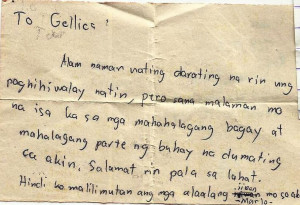 To Gellica!
Alam naman nating darating na rin ung
paghihiwalay natin, pero sana malaman mo
na isa ka sa mga mahahalagang bagay at
mahalagang parte ng buhay na dumating
sa akin. Salamat rin pala sa lahat.
Hindi ko malilimutan ang mga alaalang iniwan mo sa akin
-Marjo-